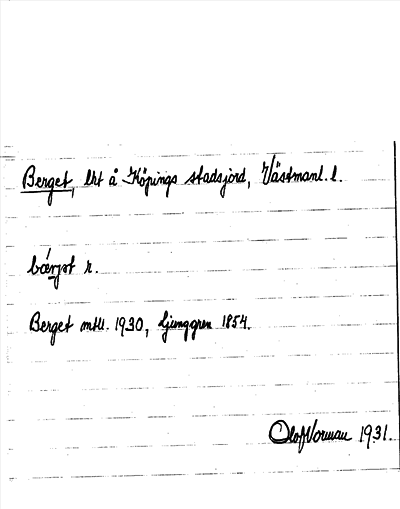 Berget, lht å Köpings stadsjord, Västmanl. l.
bǽrjet r.
Berget mtll. 1930, Ljunggren 1854.
Olof Norman 1931.